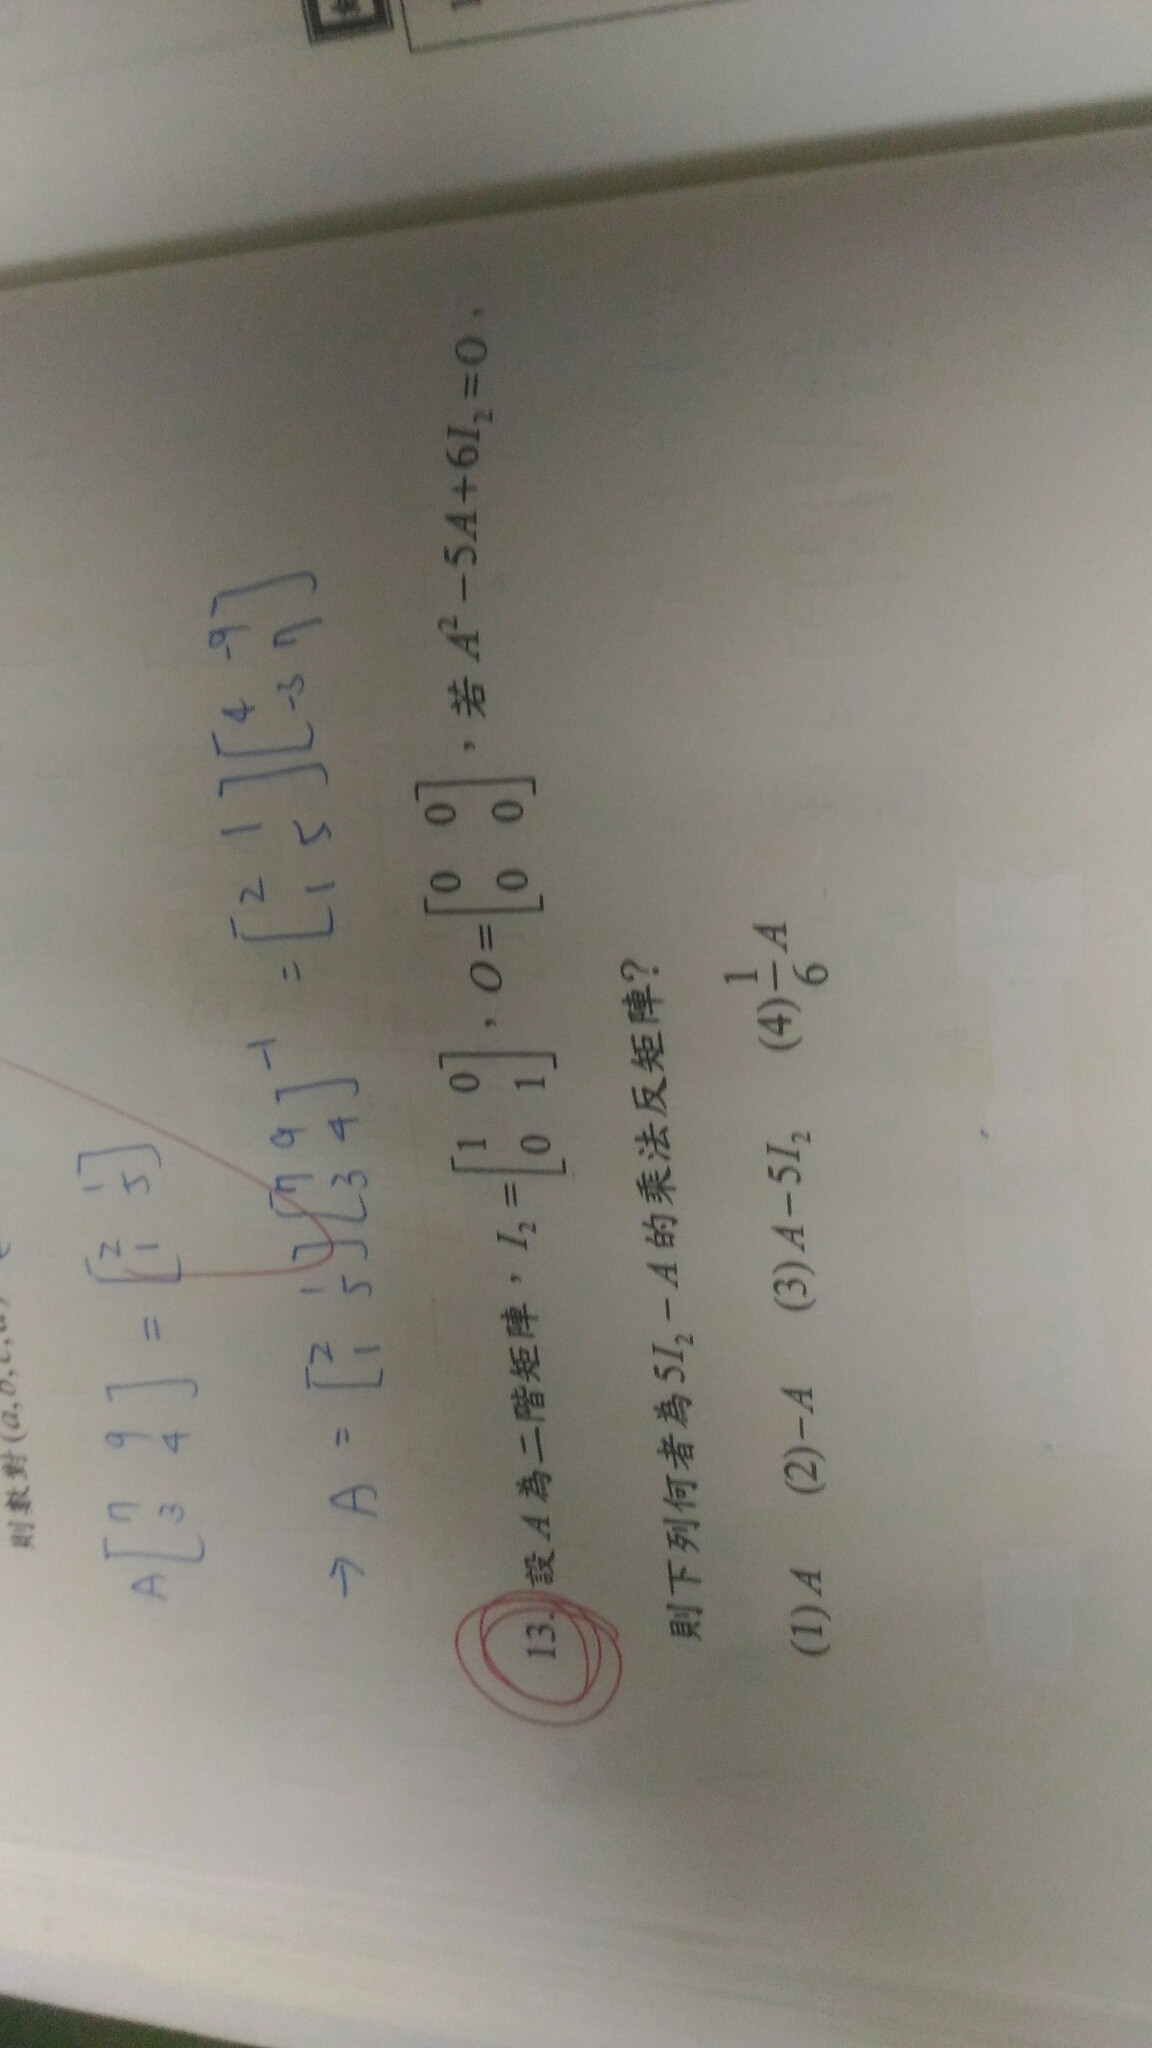 則數對(a,b,c,d)
A[7 9
3 4] = [2 1
1 5]
→ A = [2 1
1 5][7 9
3 4]⁻¹ = [2 1
1 5][4 -9
-3 7]
13. 設A為二階矩陣，I₂=[1 0
0 1]，O=[0 0
0 0]，若A²-5A+6I₂=O，
則下列何者為5I₂-A的乘法反矩陣？
(1)A (2)-A (3)A-5I₂ (4)1/6 A